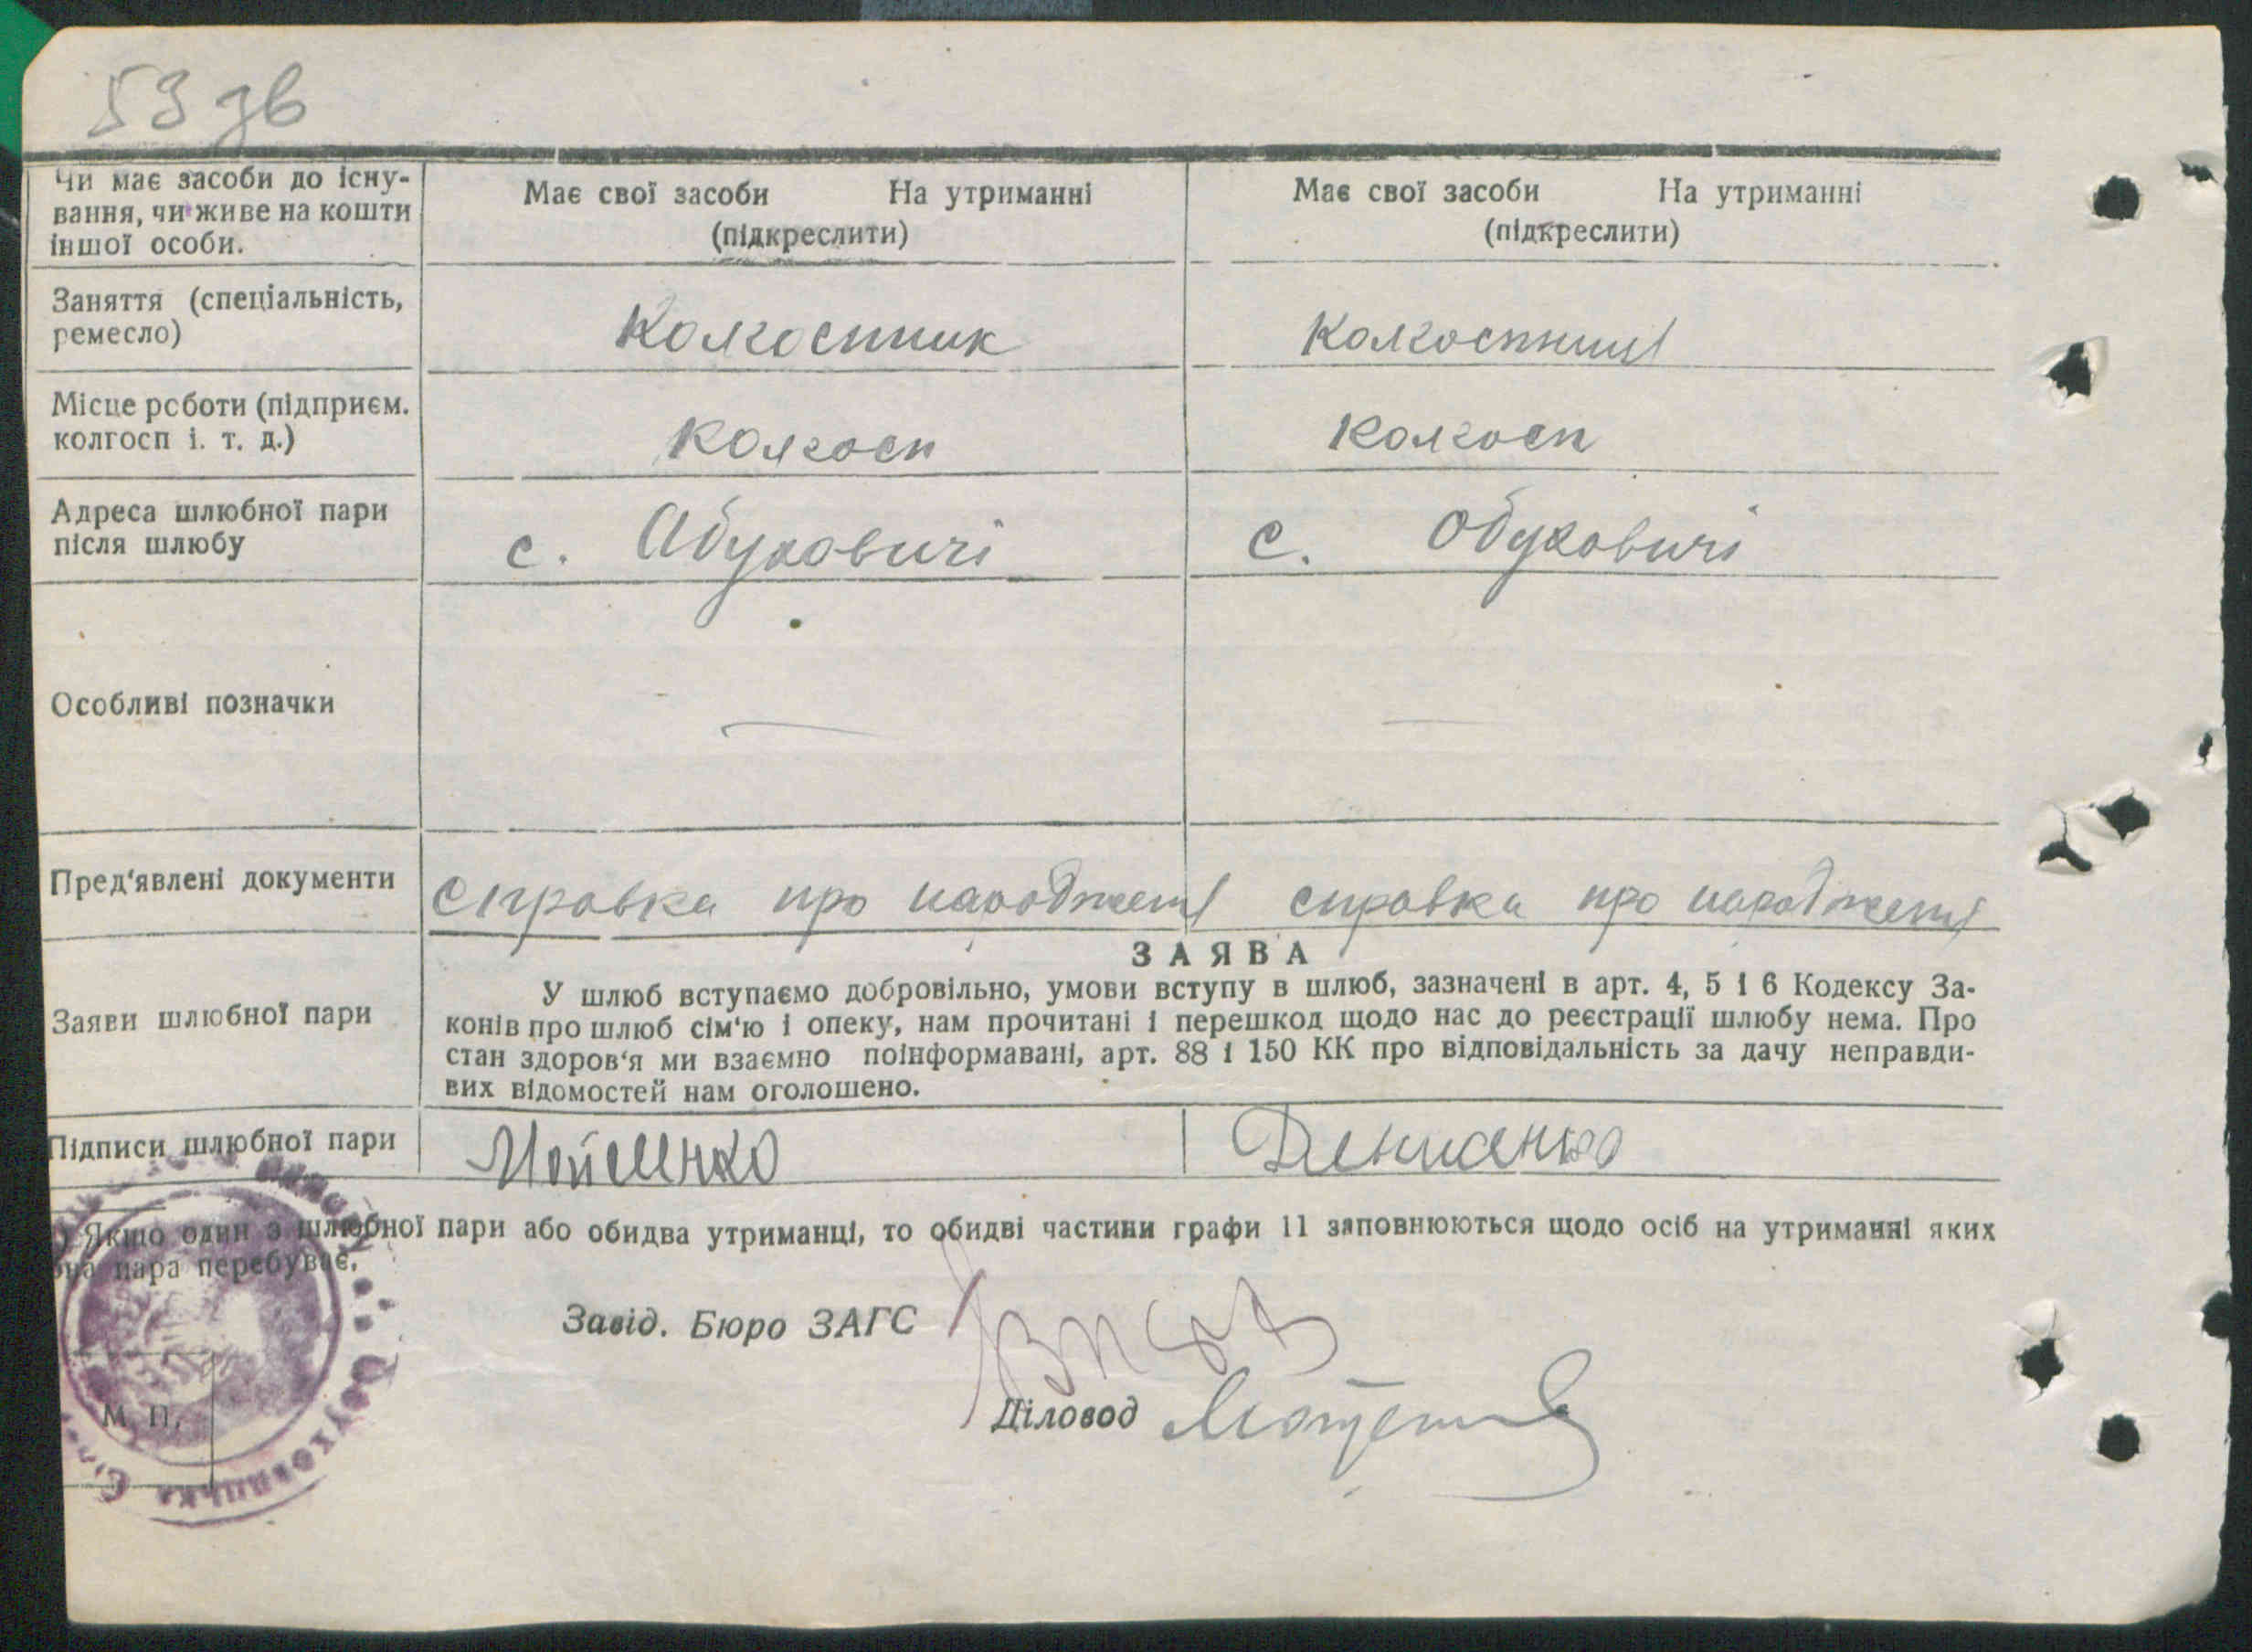 53 зв
Чи має засоби до існу-
вання, чи живе на кошти
іншої особи.
Має свої засоби На утриманні
(підкреслити)
Має свої засоби На утриманні
(підкреслити)
Заняття (спеціальність,
ремесло)
Колгоспник
Колгоспниця
Місце роботи (підприєм.
колгосп і. т. д.)
Колгосп
Колгосп
Адреса шлюбної пари
після шлюбу
с. Обуховичі
с. Обуховичі
Особливі позначки
—
—
Пред'явлені документи
справка про народження
справка про народження
Заяви шлюбної пари
ЗАЯВА
У шлюб вступаємо добровільно, умови вступу в шлюб, зазначені в арт. 4, 5 і 6 Кодексу За-
конів про шлюб сім'ю і опеку, нам прочитані і перешкод щодо нас до реєстрації шлюбу нема. Про
стан здоров'я ми взаємно поінформавані, арт. 88 і 150 КК про відповідальність за дачу неправди-
вих відомостей нам оголошено.
Підписи шлюбної пари
) Якщо один з шлюбної пари або обидва утриманці, то обидві частини графи 11 заповнюються щодо осіб на утриманні яких
пара перебуває.
Завід. Бюро ЗАГС
Діловод
М. П.